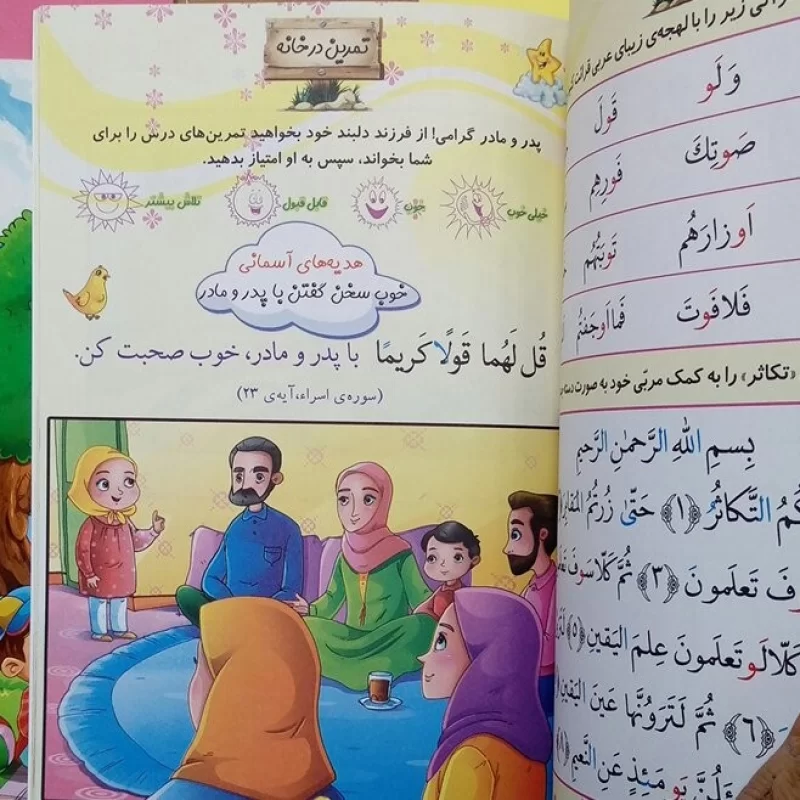 تمرین در خانه
پدر و مادر گرامی! از فرزند دلبند خود بخواهید تمرین‌های درس را برای
شما بخواند، سپس به او امتیاز بدهید.
خیلی خوب
خوب
قابل قبول
تلاش بیشتر
هدیه‌های آسمانی
خوب سخن گفتن با پدر و مادر
قُل لَهُما قَولًا كَريمًا با پدر و مادر، خوب صحبت کن.
(سوره‌ی اسراء،آیه‌ی ۲۳)
زیر را با لهجه‌ی زیبای عربی قرائت
وَلَو قَولَ
صَوتِكَ فَورِهِم
اَوزارَهُم تَوبَتُهُم
فَلافَوتَ فَمااَوجَفتُم
«تکاثر» را به کمک مربّی خود به صورت
بِسمِ اللهِ الرَّحمٰنِ الرَّحیمِ
التَّكاثُرُ ﴿۱﴾ حَتّىٰ زُرتُمُ
تَعلَمونَ ﴿۳﴾ ثُمَّ كَلّاسَوفَ
كَلّالَو تَعلَمونَ عِلمَ اليَقينِ ﴿۵﴾
﴿۶﴾ ثُمَّ لَتَرَوُنَّها عَينَ اليَقينِ
يَومَئِذٍ عَنِ النَّعيمِ ﴿۸﴾